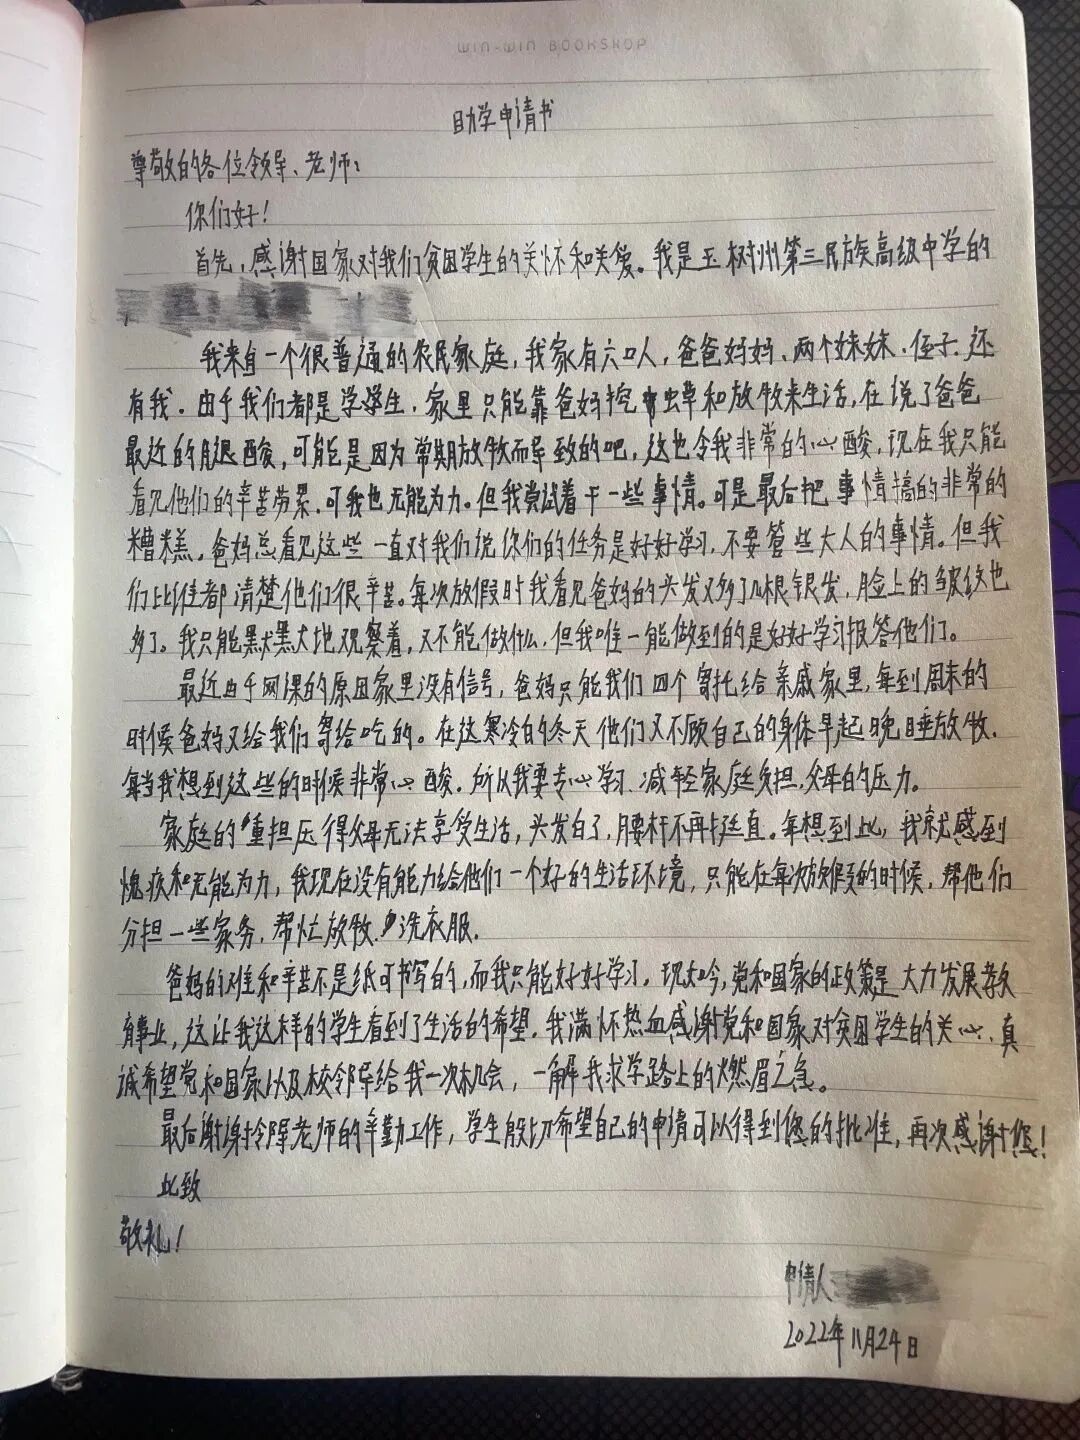 WIN-WIN BOOKSHOP
助学申请书
尊敬的各位领导、老师:
你们好!
首先,感谢国家对我们贫困学生的关怀和关爱。我是玉树州第三民族高级中学的
我来自一个很普通的农民家庭,我家有六口人,爸爸妈妈、两个妹妹、侄子、还
有我.由于我们都是学学生.家里只能靠爸妈挖虫草和放牧来生活,在说了爸爸
最近的腿酸,可能是因为常期放牧而导致的吧,这也令我非常的心酸,现在我只能
看见他们的辛苦劳累.可我也无能为力.但我尝试着干一些事情。可是最后把事情搞的非常的
糟糕。爸妈总看见这些一直对我们说你们的任务是好好学习,不要管些大人的事情。但我
们比谁都清楚他们很辛苦。每次放假时我看见爸妈的头发又多了几根银发,脸上的皱纹也
多了。我只能默默大地观察着,又不能做什么.但我唯一能做到的是好好学习报答他们。
最近由于网课的原因家里没有信号,爸妈只能我们四个寄托给亲戚家里,每到周末的
时候爸妈又给我们寄给吃的.在这寒冷的冬天他们又不顾自己的身体早起晚睡放牧.
每当我想到这些的时候非常心酸.所以我要专心学习、减轻家庭负担,父母的压力。
家庭的重担压得父母无法享受生活,头发白了,腰杆不再挺直.每想到此,我就感到
愧疚和无能为力,我现在没有能力给他们一个好的生活环境,只能在每次放假的时候,帮他们
分担一些家务,帮忙放牧.洗衣服.
爸妈的难和辛苦不是纸可书写的,而我只能好好学习.现如今,党和国家的政策是大力发展教
育事业,这让我这样的学生看到了生活的希望.我满怀热血感谢党和国家对贫困学生的关心、真
诚希望党和国家以及校领导给我一次机会,一解我求学路上的燃眉之急。
最后谢谢领导老师的辛勤工作,学生殷切希望自己的申请可以得到您的批准,再次感谢您!
此致
敬礼!
申请人
2022年11月24日